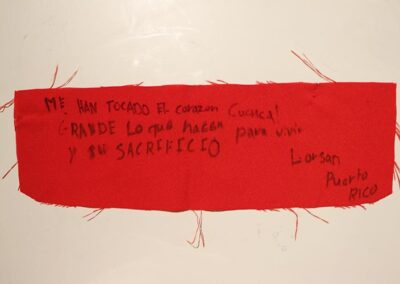 ME HAN TOCADO EL corazon
GRANDE Lo que hacen para vivir
Y SU SACRIFICIO
Lorsan
Puerto
RICO